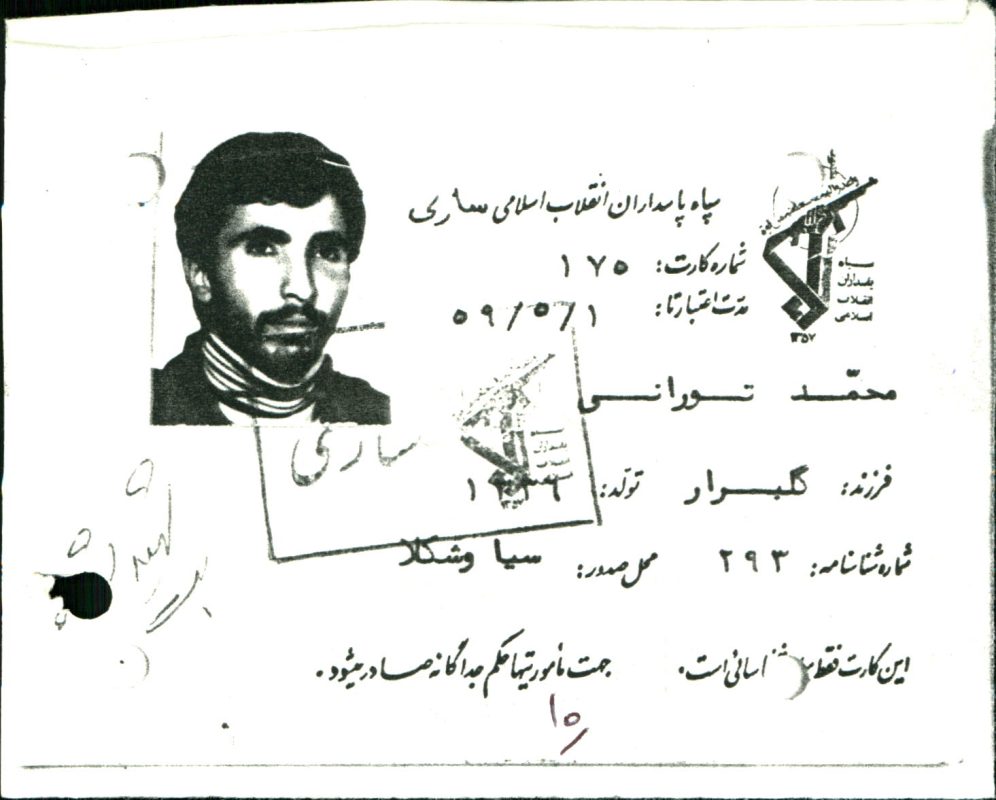 سپاه پاسداران انقلاب اسلامی ساری
شماره کارت: ۱۷۵
مدت اعتبار تا: ۵۹/۵/۱
سپاه
پاسداران
انقلاب
اسلامی
۱۳۵۷
محمّد تورانی
فرزند: گلبرار تولد:
ساری
شماره شناسنامه: ۲۹۳ محل صدور: سیاوشکلا
این کارت فقط شناسائی است. جهت مأموریتها حکم جداگانه صادر میشود.
۱۵